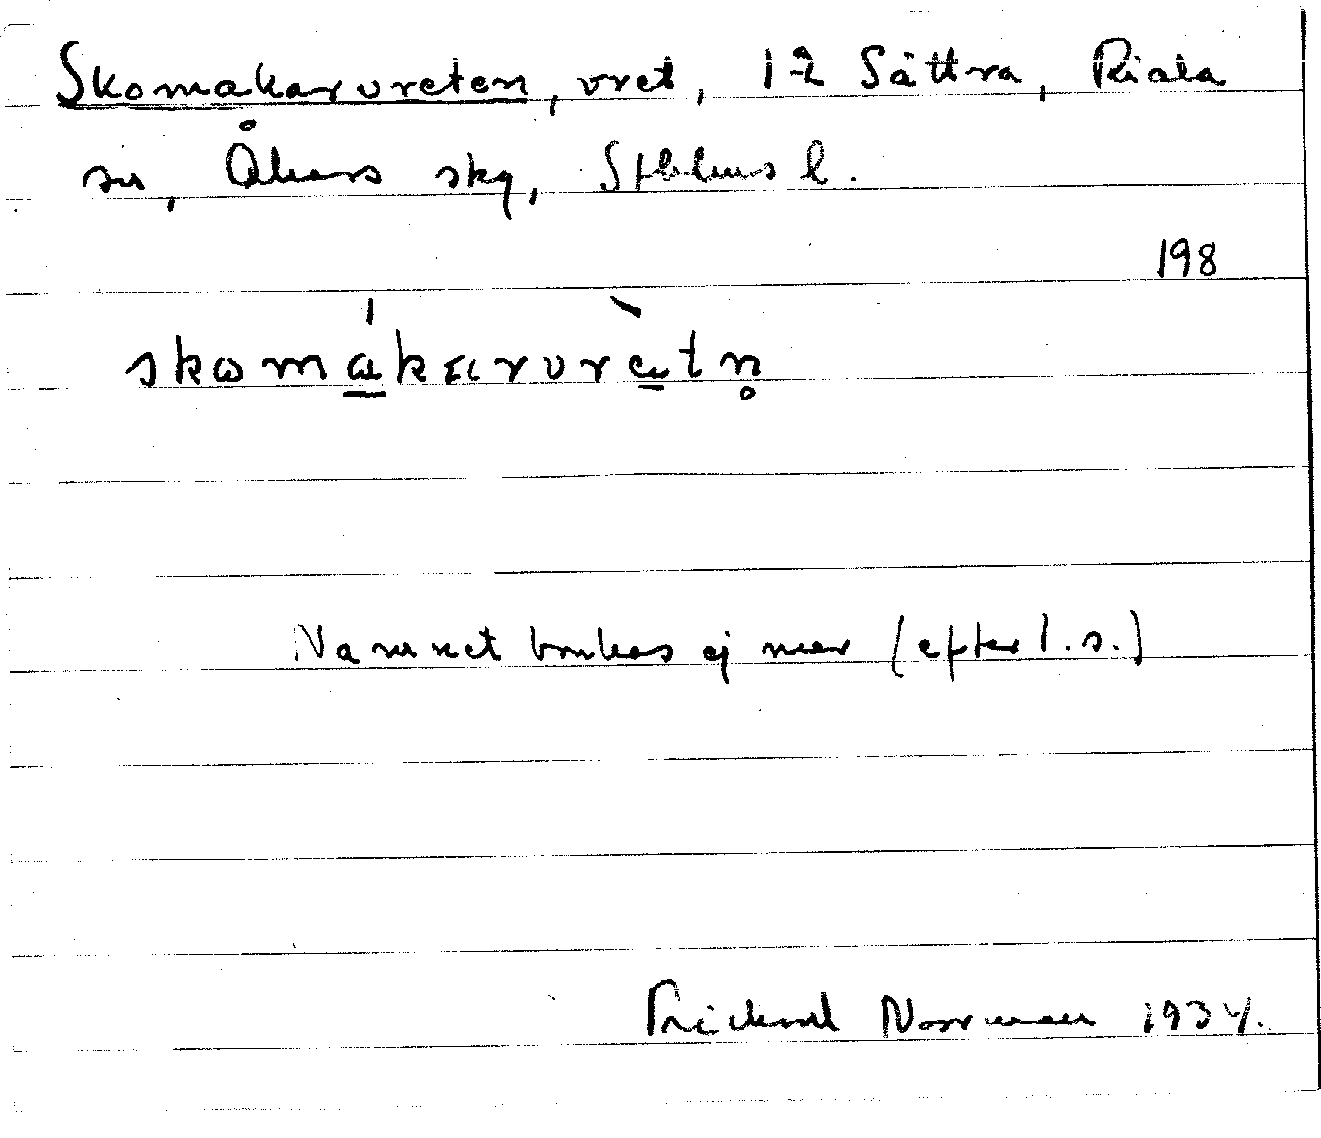 Skomakarvreten, vret, 1-2 Sättra, Riala
sn, Åkers skg, Sthlms l.
198
skomákarvrètn̥
Namnet brukas ej mer (efter l. s.)
Rickard Norrman 1934.